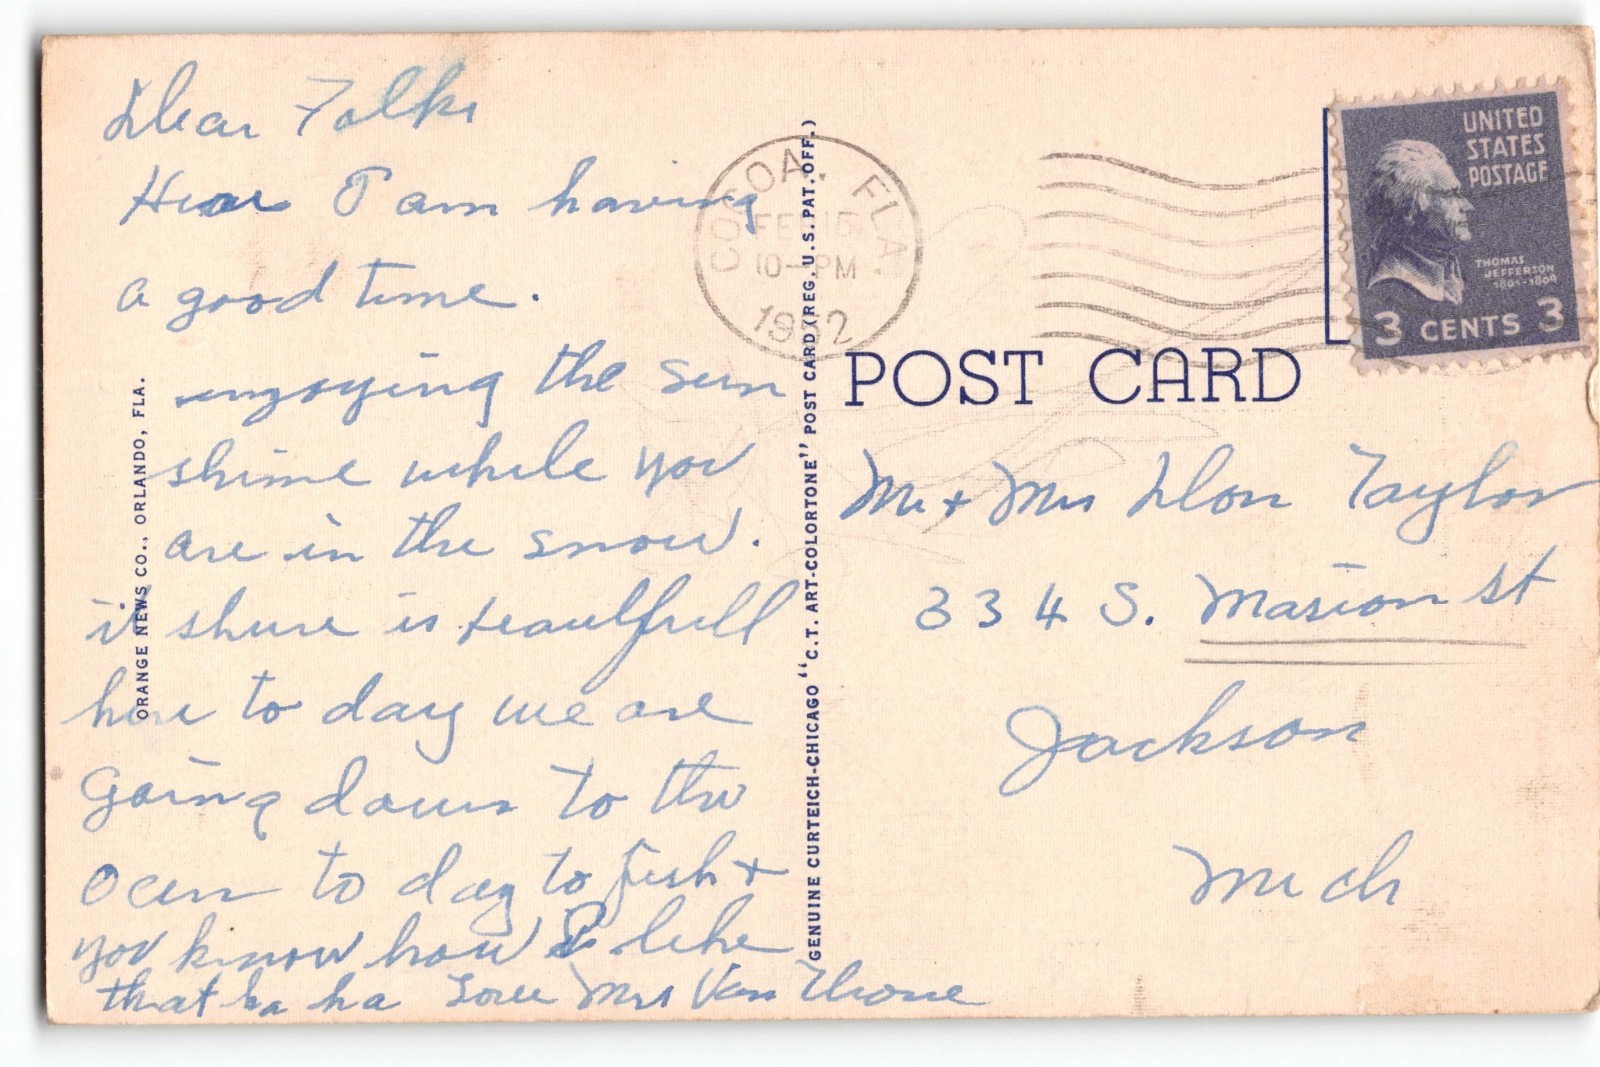 Dear Folks
Hear I am having
a good time.
engoying the sun
shine while you
are in the snow.
it shure is beautifull
here to day we are
going down to the
ocen to day to fish +
you know how I like
that ha ha Love Mrs Van
ORANGE NEWS CO., ORLANDO, FLA.
GENUINE CURTEICH-CHICAGO "C.T. ART-COLORTONE" POST CARD (REG. U.S. PAT. OFF.)
COCOA, FLA.
FEB 15
10-PM
1952
UNITED
STATES
POSTAGE
THOMAS
JEFFERSON
1801-1809
3 CENTS 3
POST CARD
Mr + Mrs Don Taylor
334 S. Marion St
Jackson
Mich